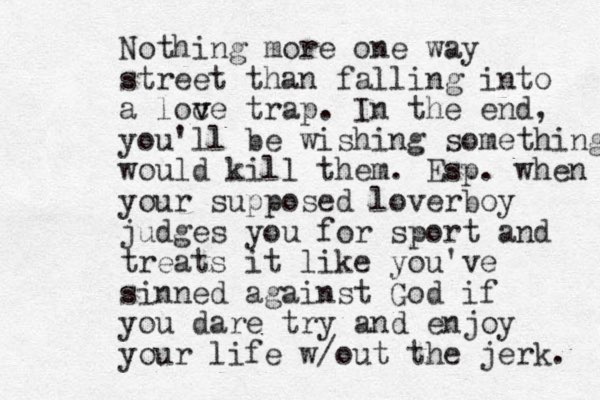 Nothing more one way
street than falling into
a love trap. In the end,
you'll be wishing something
would kill them. Esp. when
your supposed loverboy
judges you for sport and
treats it like you've
sinned against God if
you dare try and enjoy
your life w/out the jerk.